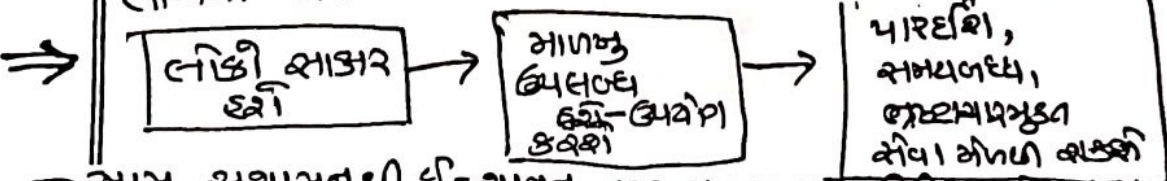 લોકો સાક્ષર
હશે
માળખુ
ઉપલબ્ધ
હશે-ઉપયોગ
કરશે
પારદર્શિ,
સમયબધ્ધ,
ભ્રષ્ટાચારમુક્ત
સેવા મેળવી શકશે